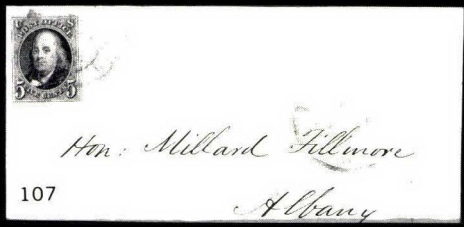 POST OFFICE
5 5
FIVE CENTS
Hon: Millard Fillmore
Albany
107